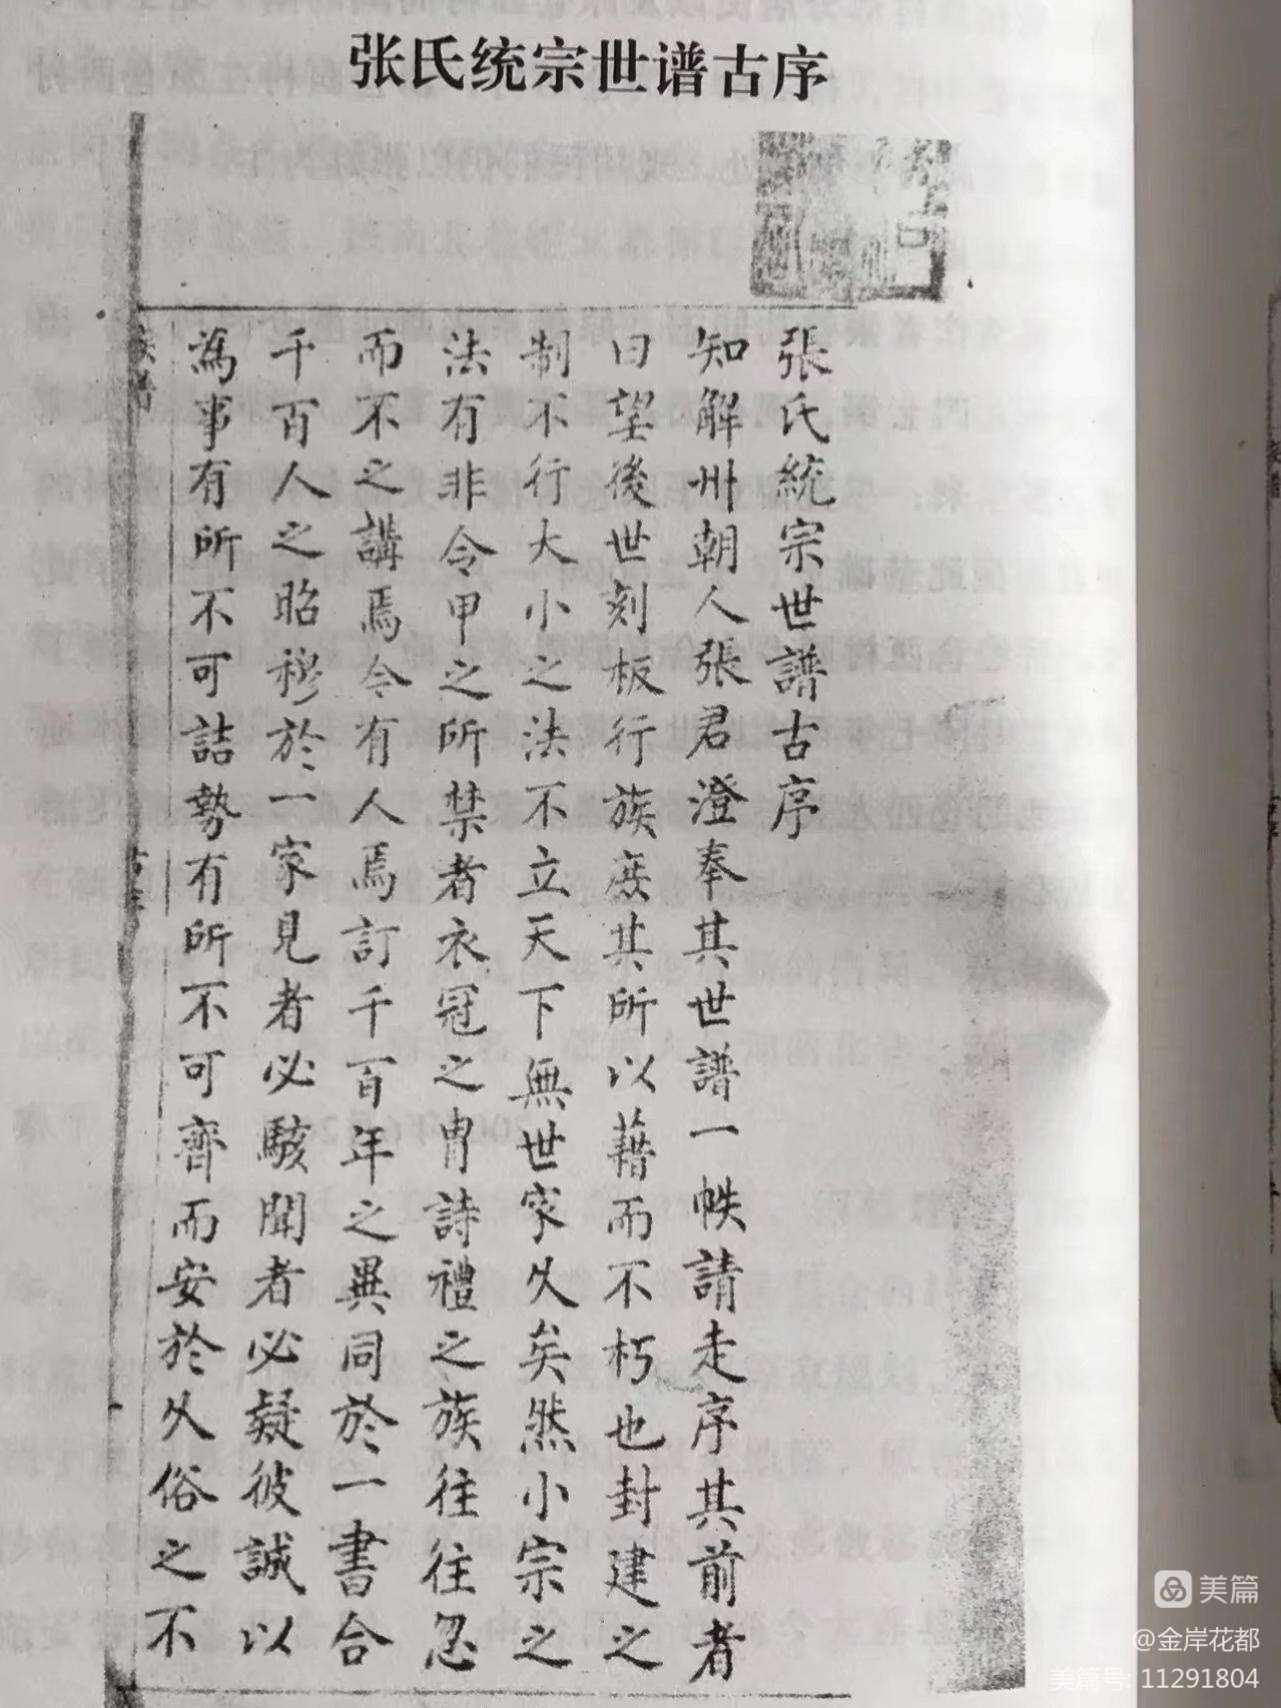 张氏统宗世谱古序
張氏統宗世譜古序
知解州朝人張君澄奉其世譜一帙請走序其前者
曰望後世刻板行族庶其所以藉而不朽也封建之
制不行大小之法不立天下無世家久矣然小宗之
法有非令甲之所禁者衣冠之胄詩禮之族往往忽
而不之講焉令有人焉訂千百年之異同於一書合
千百人之昭穆於一家見者必駭聞者必疑彼誠以
為事有所不可詰勢有所不可齊而安於久俗之不
美篇
@金岸花都
美篇号: 11291804